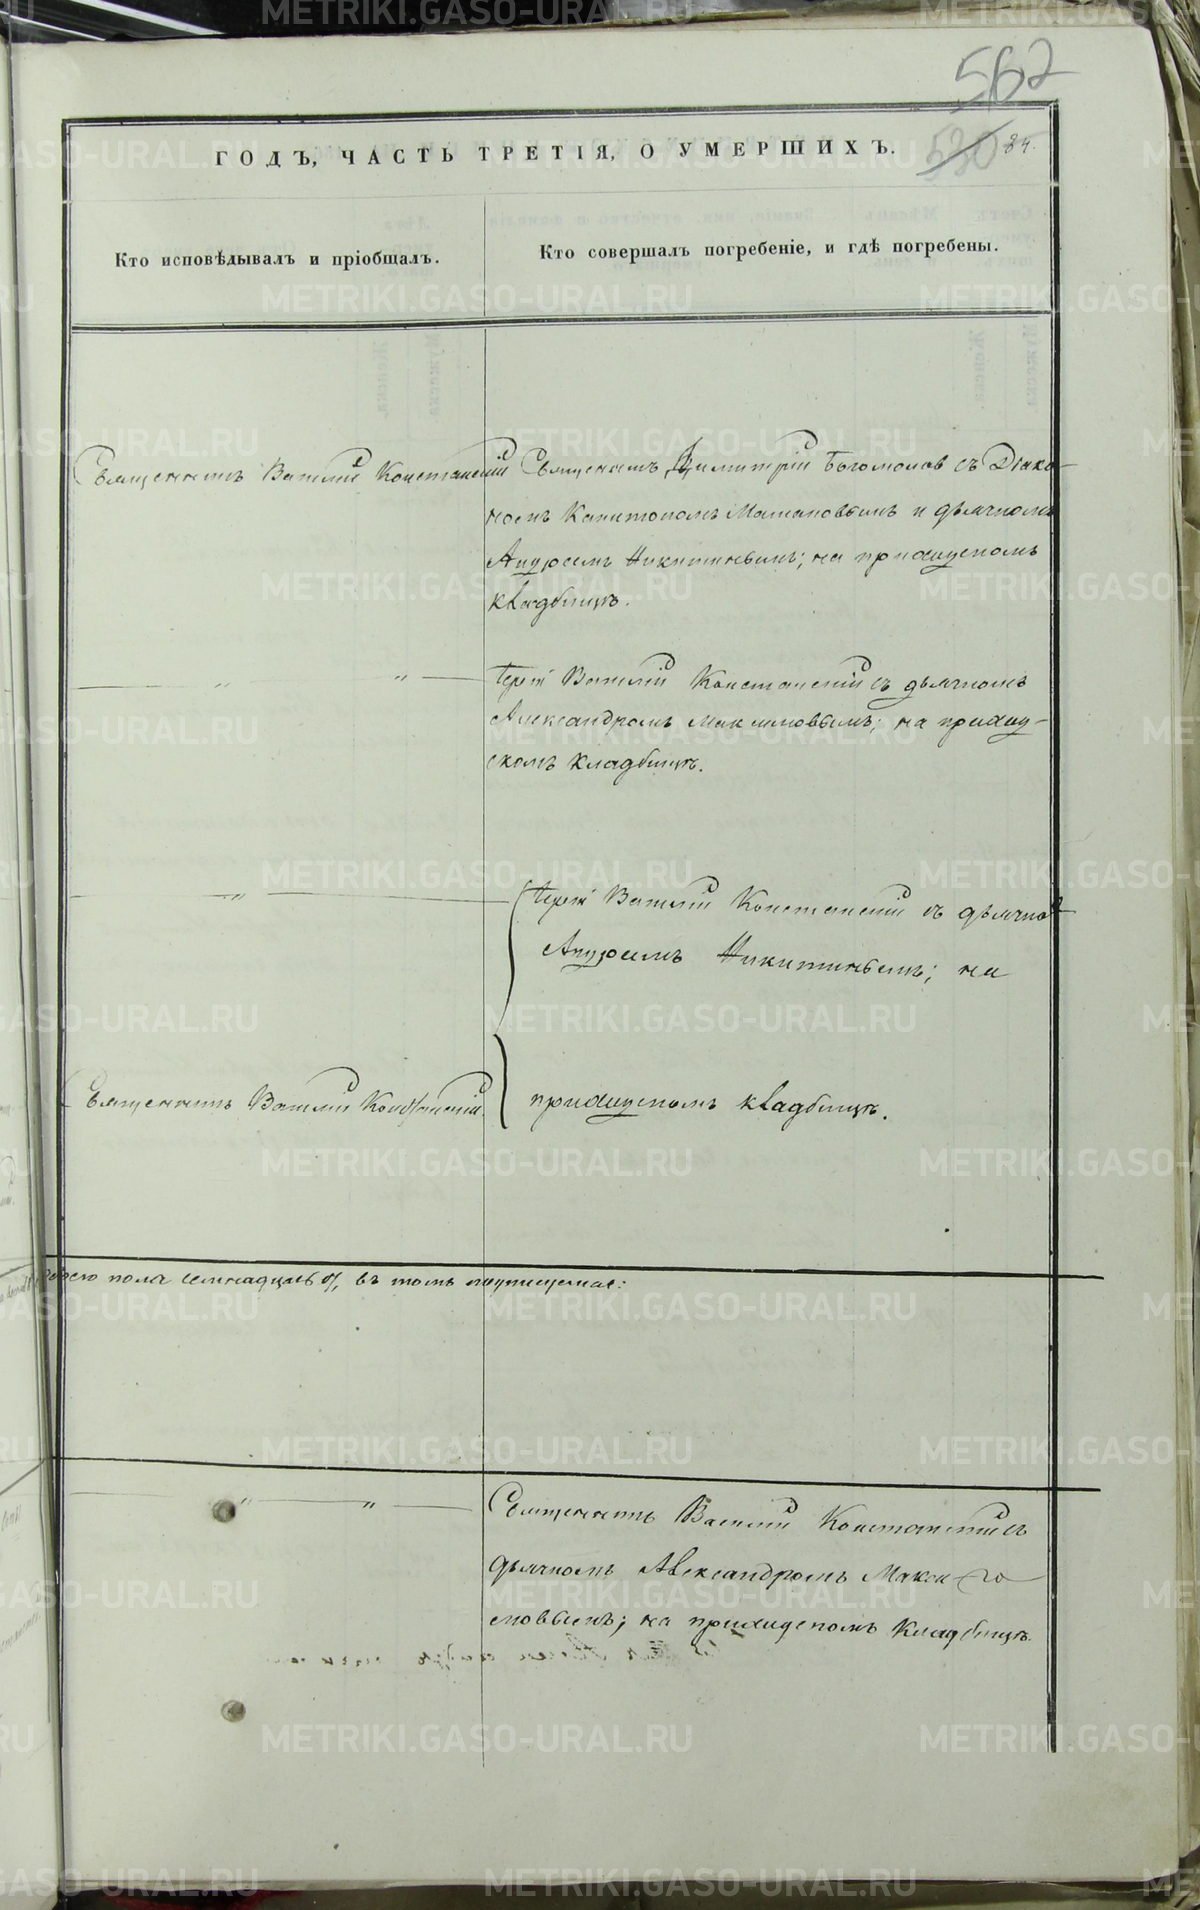 562
530 84.
ГОДЪ, ЧАСТЬ ТРЕТІЯ, О УМЕРШИХЪ.
Кто исповѣдывалъ и пріобщалъ.
Кто совершалъ погребеніе, и гдѣ погребены.
Священникъ Василій Констанскій
Священникъ Димитрій Богомолов съ Діако-
номъ Капитономъ и дьячкомъ
Андреемъ Никитинымъ; на приходскомъ
кладбищѣ.
" "
Іерей Василій Констанскій съ дьячкомъ
Александромъ Максимовымъ; на приход-
скомъ кладбищѣ.
"
Іерей Василій Констанскій съ дьячко
Андреемъ Никитинымъ; на
Священникъ Василій Констанскій
приходскомъ кладбищѣ.
пола семнадцать 17, въ томъ
" "
Священникъ Василій Констанскій съ
дьячкомъ Александромъ Макси-
мовымъ; на приходскомъ кладбищѣ.
METRIKI.GASO-URAL.RU